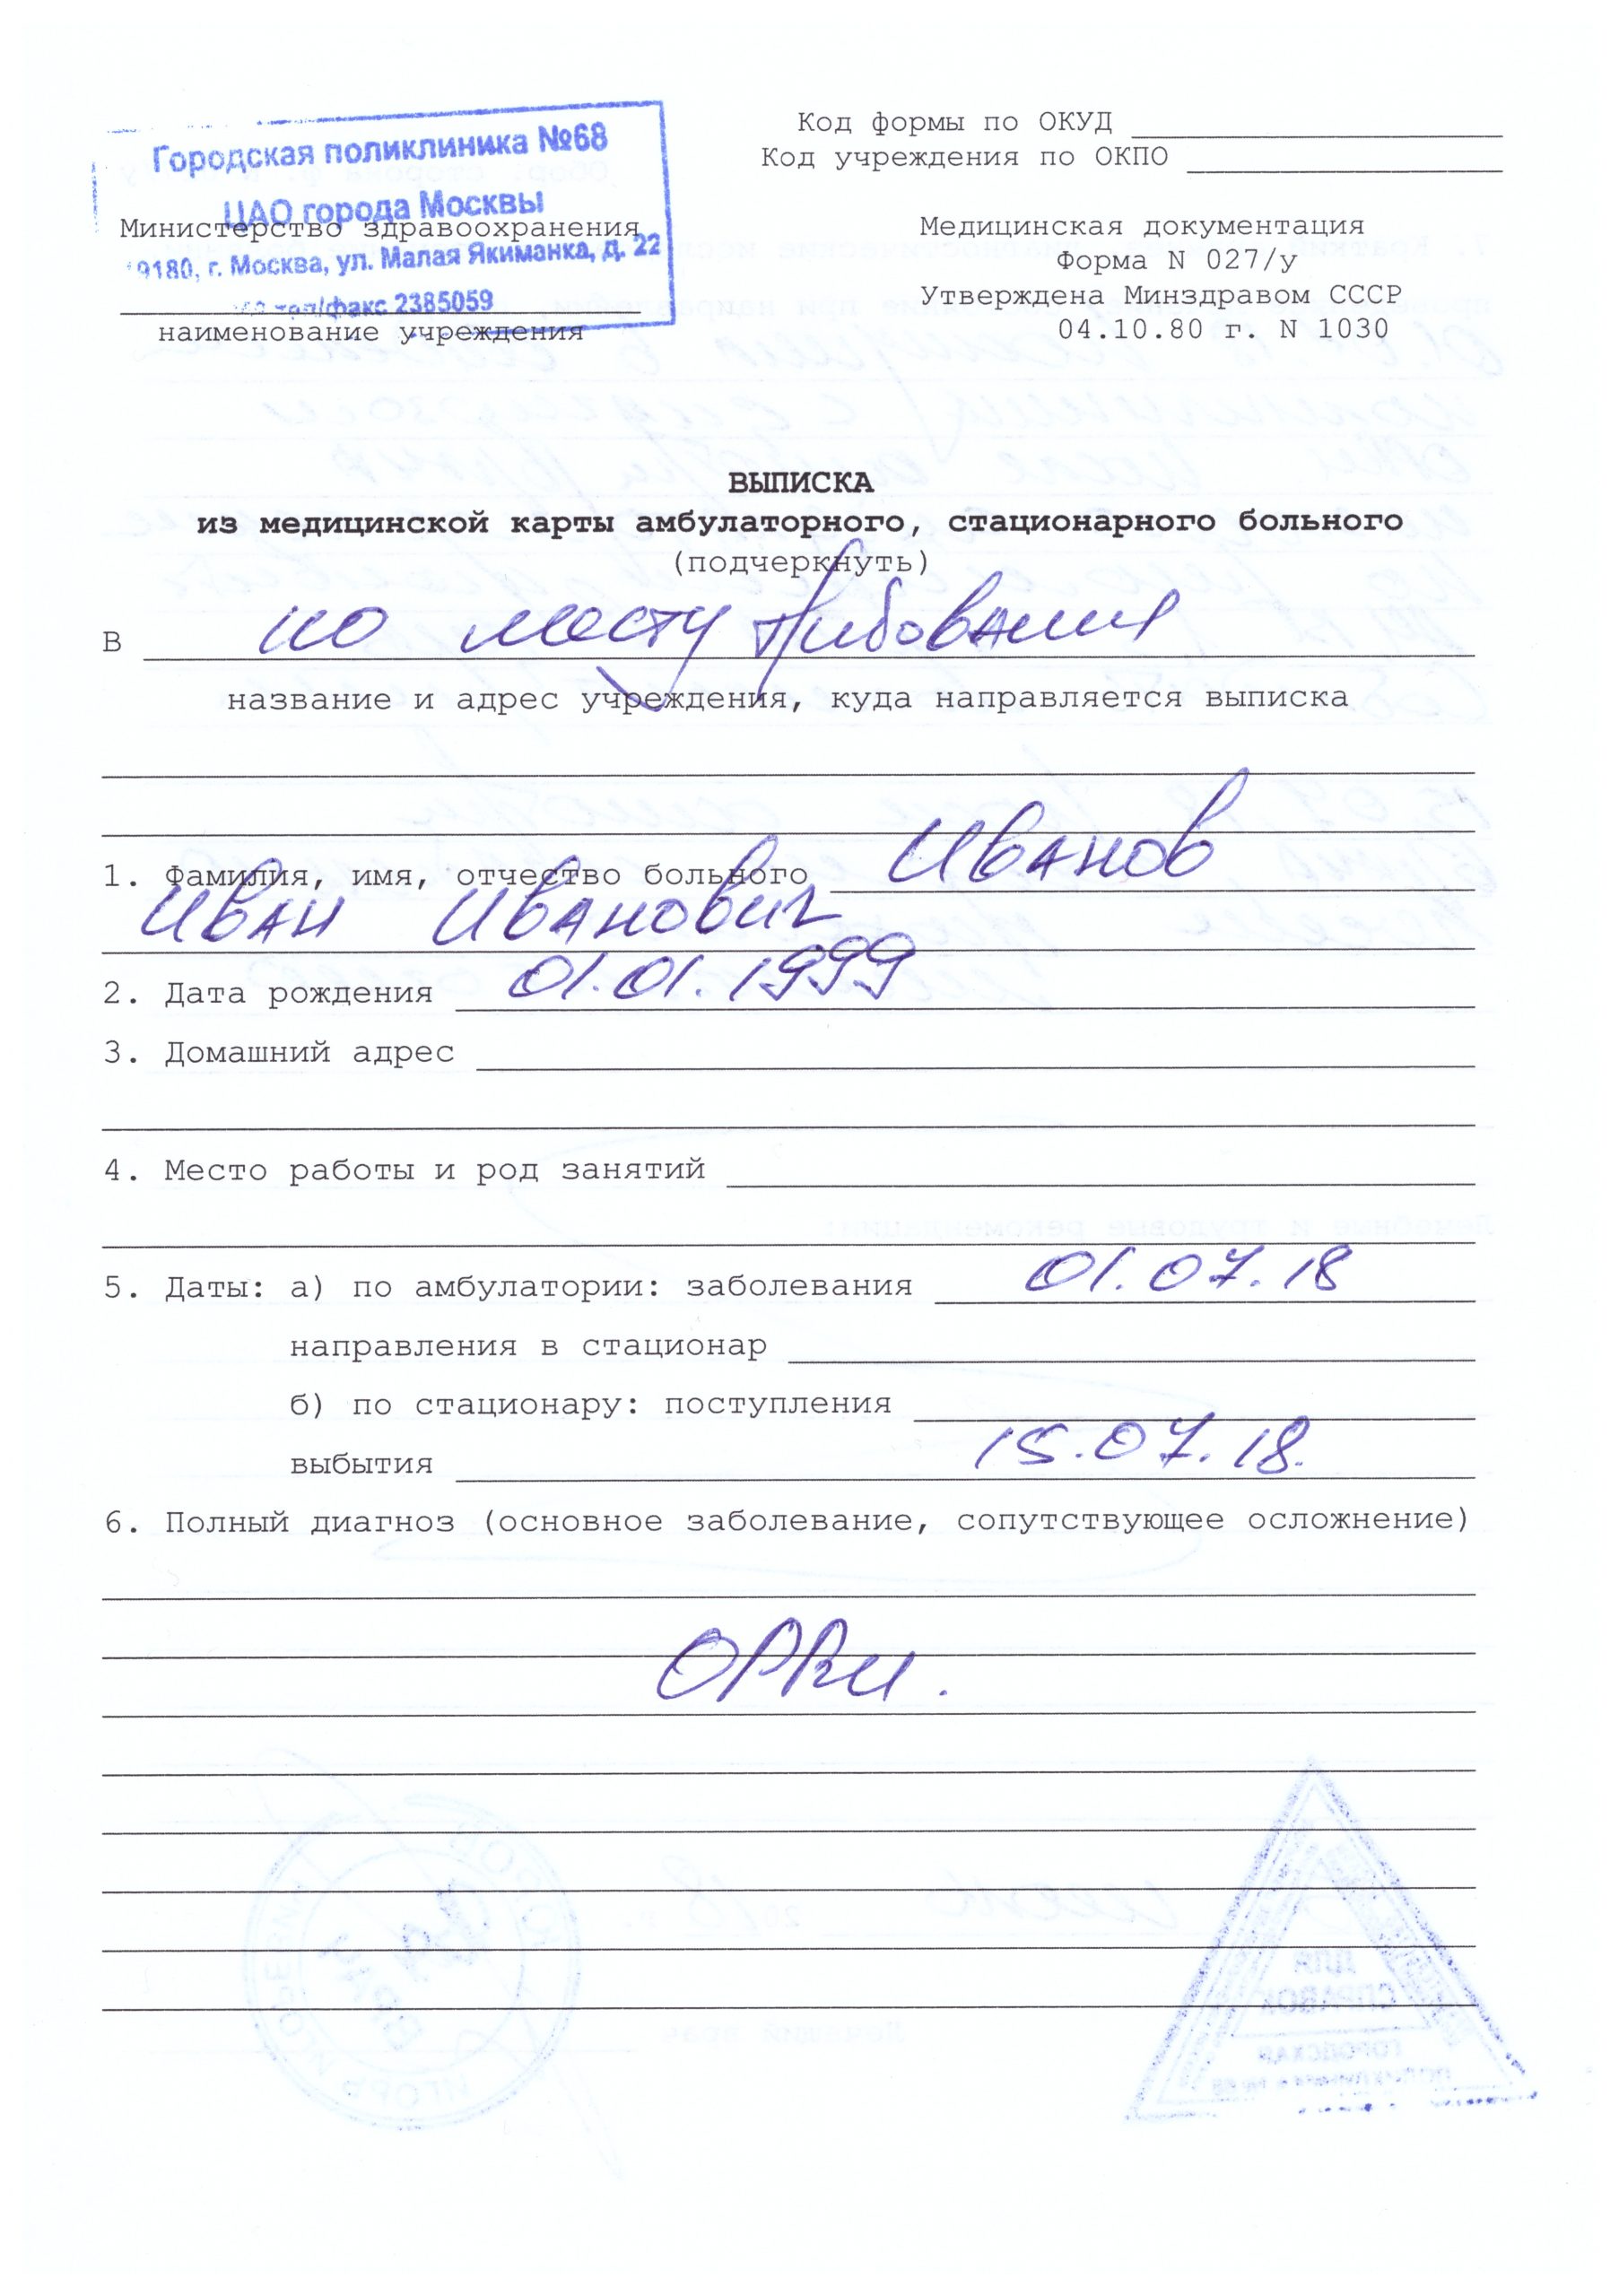 Городская поликлиника №68
ЦАО города Москвы
9180, г. Москва, ул. Малая Якиманка, д. 22
тел/факс 2385059
Министерство здравоохранения
наименование учреждения
Код формы по ОКУД
Код учреждения по ОКПО
Медицинская документация
Форма N 027/у
Утверждена Минздравом СССР
04.10.80 г. N 1030
ВЫПИСКА
из медицинской карты амбулаторного, стационарного больного
(подчеркнуть)
В по месту требования
название и адрес учреждения, куда направляется выписка
1. Фамилия, имя, отчество больного Иванов
Иван Иванович
2. Дата рождения 01.01.1999
3. Домашний адрес
4. Место работы и род занятий
5. Даты: а) по амбулатории: заболевания 01.07.18
направления в стационар
б) по стационару: поступления
выбытия 15.07.18.
6. Полный диагноз (основное заболевание, сопутствующее осложнение)
ОРВИ.
ДЛЯ
СПРАВОК
ГОРОДСКАЯ
Лечащий врач